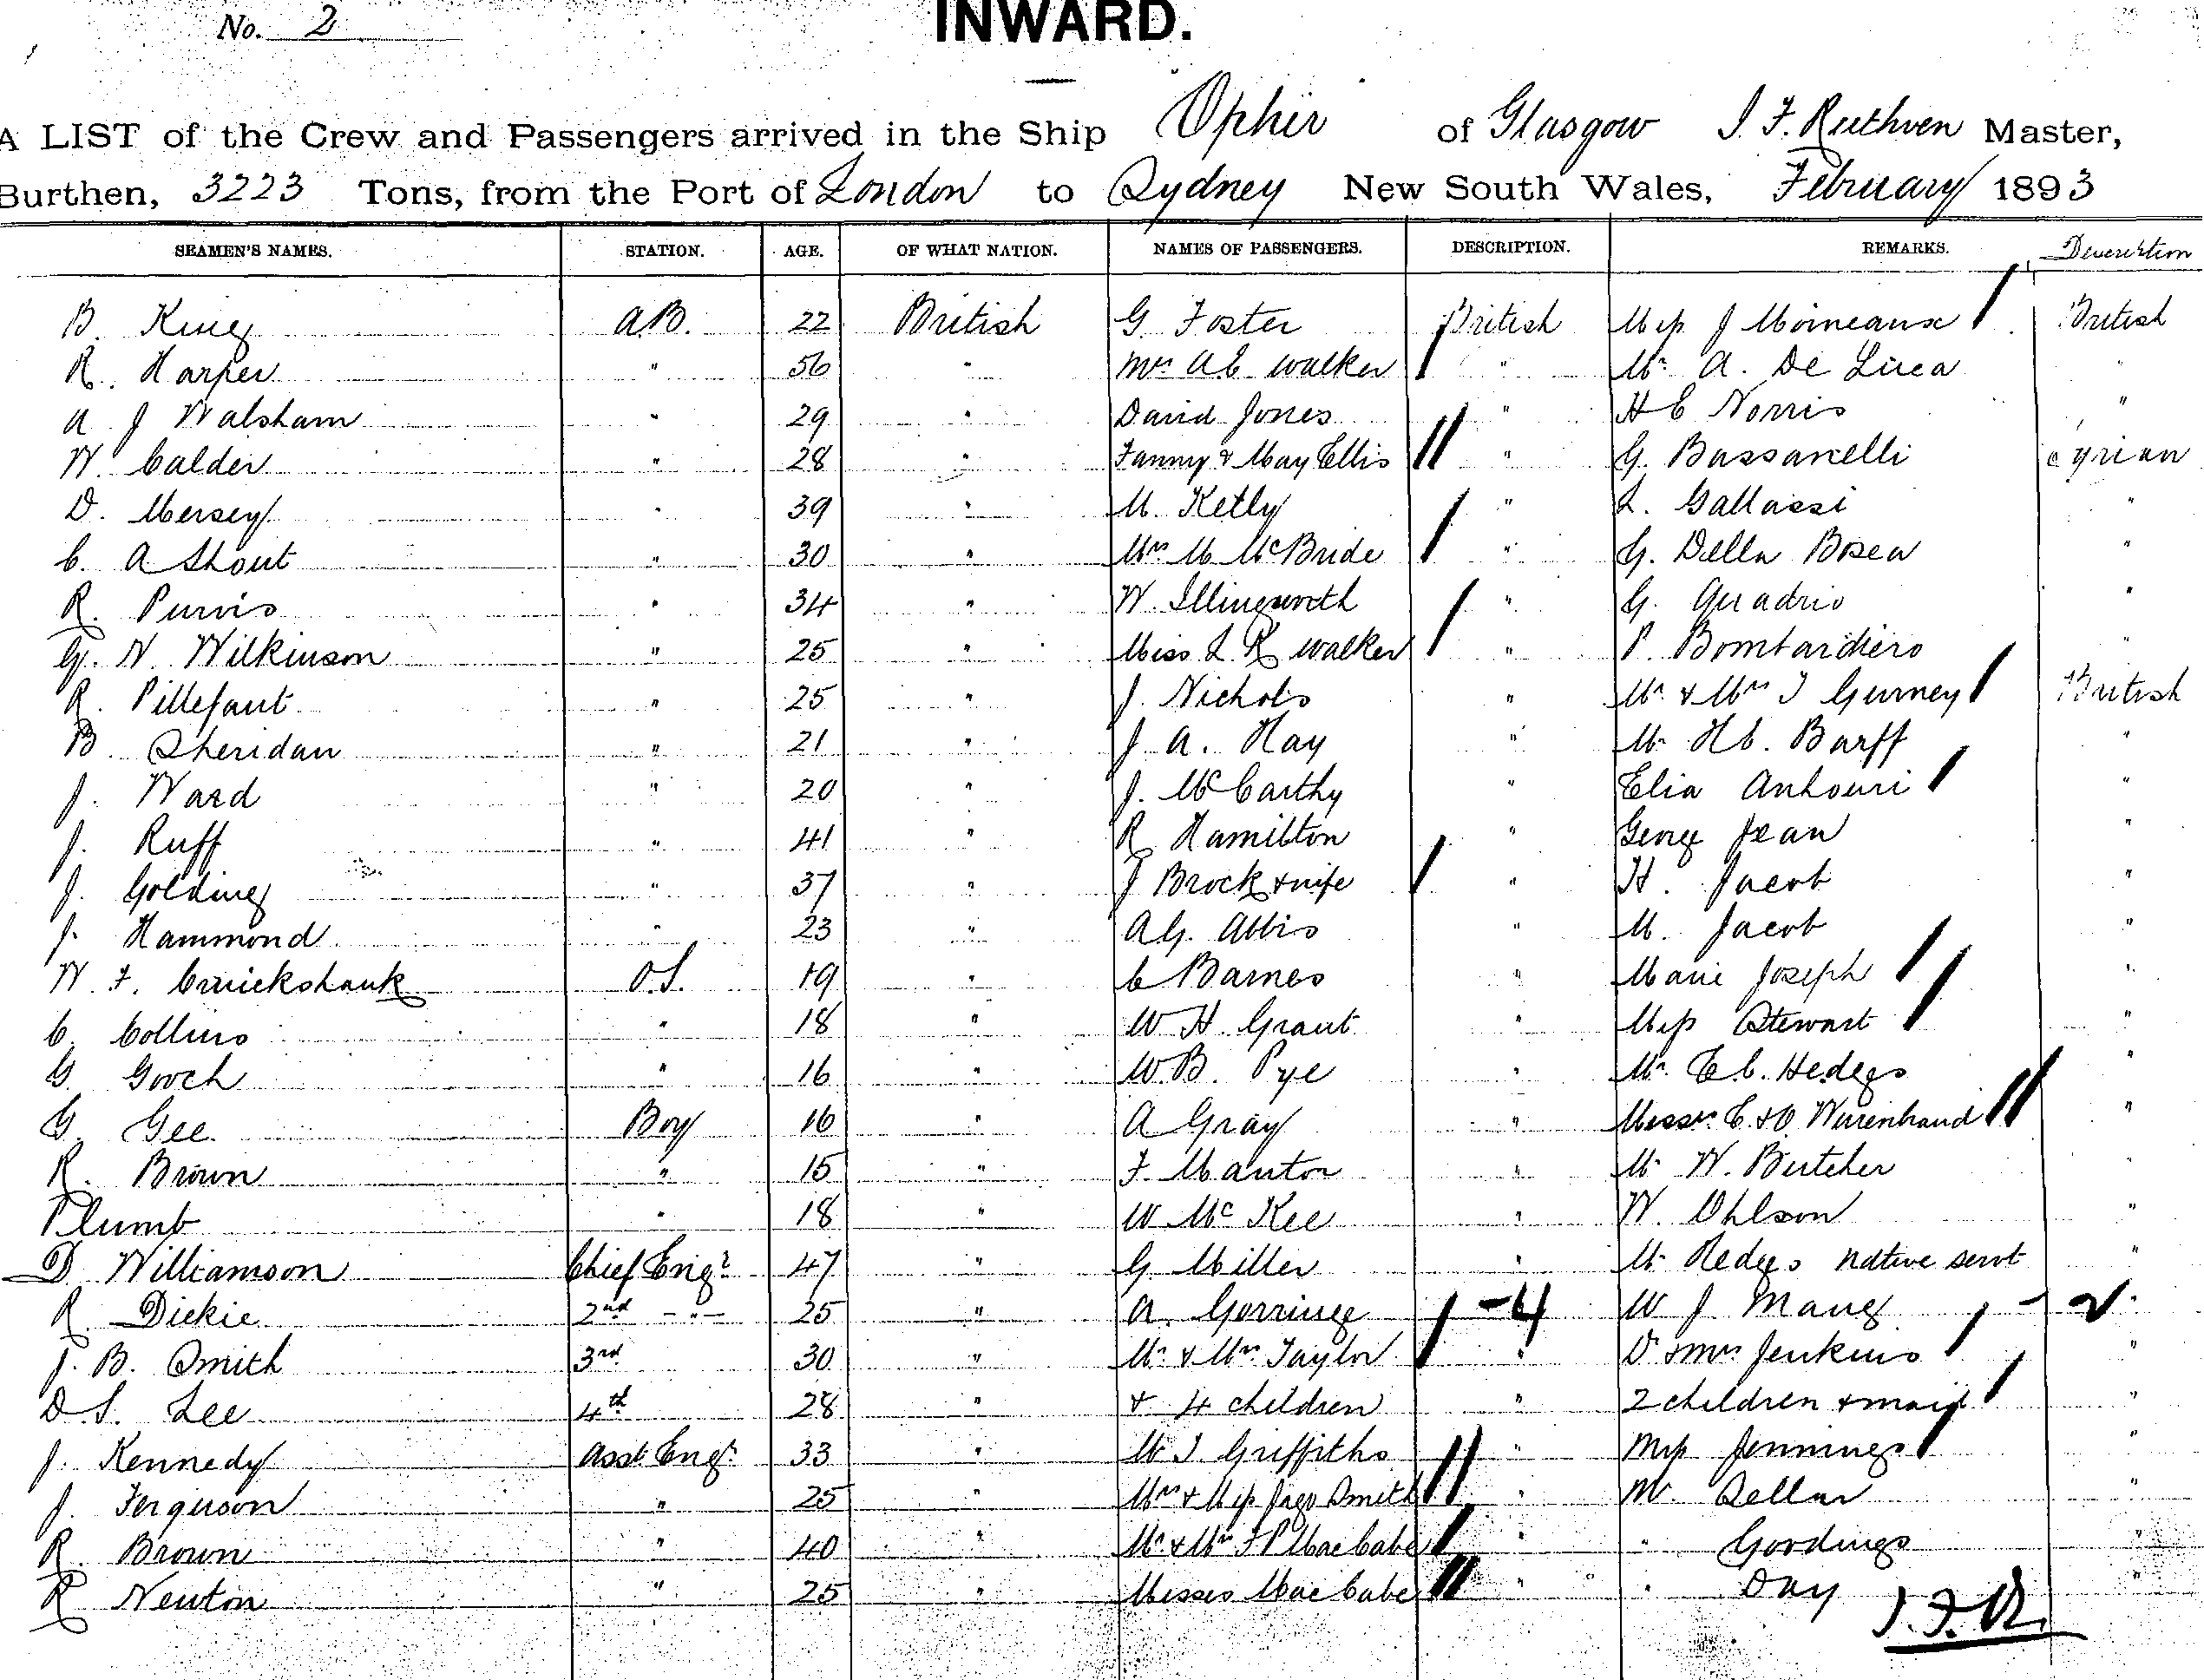 No. 2
INWARD.
A LIST of the Crew and Passengers arrived in the Ship Ophir of Glasgow J. F. Ruthven Master,
Burthen, 3223 Tons, from the Port of London to Sydney New South Wales, February 1893
SEAMEN'S NAMES. STATION. AGE. OF WHAT NATION. NAMES OF PASSENGERS. DESCRIPTION. REMARKS.
B. King A.B. 22 British G Foster British Miss J Moineaux British
R. Harper " 36 " Mrs A E Walker " Mr A. De Luca "
A J Walsham " 29 " David Jones " H C Norris "
W. Calder " 28 " Fanny & May Ellis " G. Bassanelli Syrian
D. Mersey " 39 " M. Kelly " L. Gallassi "
C. A Shout " 30 " Mrs M McBride " G. Della Bosca "
R. Purvis " 34 " W. Illingworth " G. Quadrio "
G. N. Wilkinson " 25 " Miss L. R Walker " P. Bombardiero "
R. Pillefant " 25 " J. Nichols " Mr & Mrs J Gurney British
B. Sheridan " 21 " J. A. Hay " Mr H C. Barff "
J. Ward " 20 " J. McCarthy " Elia Anhouri "
J. Ruff " 41 " R Hamilton " George Jean "
J. Golding " 37 " J Brock & wife " H. Jacob "
J. Hammond " 23 " A G. Abbis " M. Jacob "
W. F. Cruickshank O.S. 19 " C Barnes " Marie Joseph "
C. Collins " 18 " W H. Grant " Miss Stewart "
G Gooch " 16 " W. B. Pye " Mr. E C. Hedges "
G. Gee Boy 16 " A Gray " Messrs. C. & O. "
R. Brown " 15 " F. Manton " Mr W. Butcher "
Plumb " 18 " W McKee " W. Ohlson "
D Williamson Chief Engr 47 " G. Miller " Mr Hedges native servt "
R. Dickie 2nd " 25 " A. Gorringe - 4 W J Maug
J. B. Smith 3rd 30 " Mr & Mrs Taylor " D & Mrs Jenkins "
D. S. Lee 4th 28 " & 4 children " 2 children & maid "
J. Kennedy Asst Engr 33 " W J Griffiths " Miss Jennings "
J. Ferguson " 25 " Mrs & Miss Jago Smith " Mr. Sellar "
R. Brown " 40 " Mr & Mrs F P MacCabe " " Gordings "
R Newton " 25 " Misses MacCabe " " Day "
J. F. R.